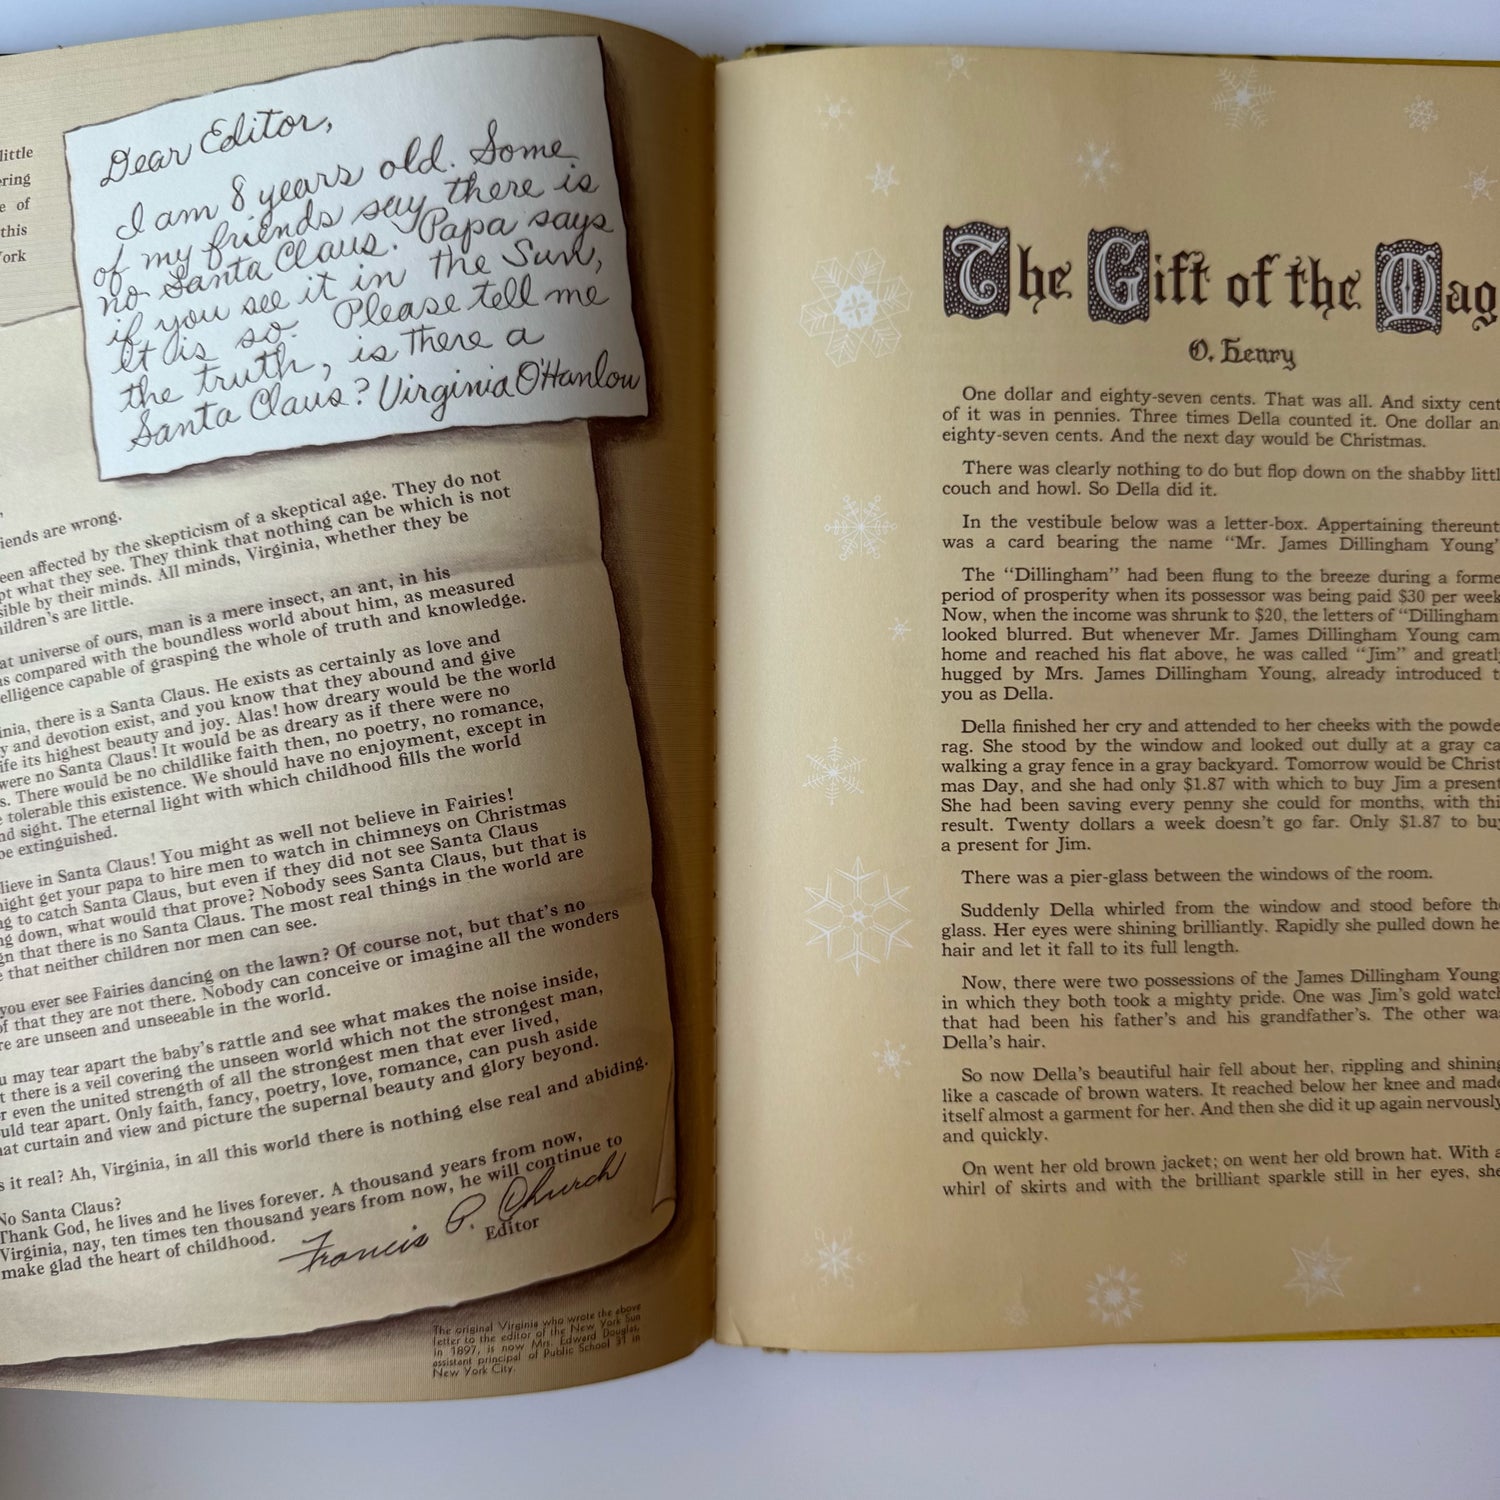 little
ering
e of
this
ork
Dear Editor,
I am 8 years old. Some
of my friends say there is
no Santa Claus. Papa says
if you see it in the Sun,
It is so. Please tell me
the truth, is there a
Santa Claus? Virginia O'Hanlon
iends are wrong.
een affected by the skepticism of a skeptical age. They do not
pt what they see. They think that nothing can be which is not
sible by their minds. All minds, Virginia, whether they be
hildren's are little.
at universe of ours, man is a mere insect, an ant, in his
as compared with the boundless world about him, as measured
elligence capable of grasping the whole of truth and knowledge.
inia, there is a Santa Claus. He exists as certainly as love and
y and devotion exist, and you know that they abound and give
ife its highest beauty and joy. Alas! how dreary would be the world
were no Santa Claus! It would be as dreary as if there were no
s. There would be no childlike faith then, no poetry, no romance,
e tolerable this existence. We should have no enjoyment, except in
nd sight. The eternal light with which childhood fills the world
be extinguished.
lieve in Santa Claus! You might as well not believe in Fairies!
ight get your papa to hire men to watch in chimneys on Christmas
ng to catch Santa Claus, but even if they did not see Santa Claus
ng down, what would that prove? Nobody sees Santa Claus, but that is
gn that there is no Santa Claus. The most real things in the world are
e that neither children nor men can see.
you ever see Fairies dancing on the lawn? Of course not, but that's no
of that they are not there. Nobody can conceive or imagine all the wonders
re are unseen and unseeable in the world.
u may tear apart the baby's rattle and see what makes the noise inside,
t there is a veil covering the unseen world which not the strongest man,
r even the united strength of all the strongest men that ever lived,
uld tear apart. Only faith, fancy, poetry, love, romance, can push aside
hat curtain and view and picture the supernal beauty and glory beyond.
s it real? Ah, Virginia, in all this world there is nothing else real and abiding.
No Santa Claus?
Thank God, he lives and he lives forever. A thousand years from now,
Virginia, nay, ten times ten thousand years from now, he will continue to
make glad the heart of childhood.
Francis P. Church
Editor
The original Virginia who wrote the above
letter to the editor of the New York Sun
in 1897, is now Mrs. Edward Douglas,
assistant principal of Public School 31 in
New York City.
The Gift of the Mag
O. Henry
One dollar and eighty-seven cents. That was all. And sixty cent
of it was in pennies. Three times Della counted it. One dollar an
eighty-seven cents. And the next day would be Christmas.
There was clearly nothing to do but flop down on the shabby littl
couch and howl. So Della did it.
In the vestibule below was a letter-box. Appertaining thereunt
was a card bearing the name "Mr. James Dillingham Young"
The "Dillingham" had been flung to the breeze during a forme
period of prosperity when its possessor was being paid $30 per week
Now, when the income was shrunk to $20, the letters of "Dillingham
looked blurred. But whenever Mr. James Dillingham Young cam
home and reached his flat above, he was called "Jim" and greatl
hugged by Mrs. James Dillingham Young, already introduced t
you as Della.
Della finished her cry and attended to her cheeks with the powde
rag. She stood by the window and looked out dully at a gray ca
walking a gray fence in a gray backyard. Tomorrow would be Christ
mas Day, and she had only $1.87 with which to buy Jim a present
She had been saving every penny she could for months, with thi
result. Twenty dollars a week doesn't go far. Only $1.87 to buy
a present for Jim.
There was a pier-glass between the windows of the room.
Suddenly Della whirled from the window and stood before the
glass. Her eyes were shining brilliantly. Rapidly she pulled down he
hair and let it fall to its full length.
Now, there were two possessions of the James Dillingham Young
in which they both took a mighty pride. One was Jim's gold watch
that had been his father's and his grandfather's. The other was
Della's hair.
So now Della's beautiful hair fell about her, rippling and shining
like a cascade of brown waters. It reached below her knee and made
itself almost a garment for her. And then she did it up again nervously
and quickly.
On went her old brown jacket; on went her old brown hat. With a
whirl of skirts and with the brilliant sparkle still in her eyes, she